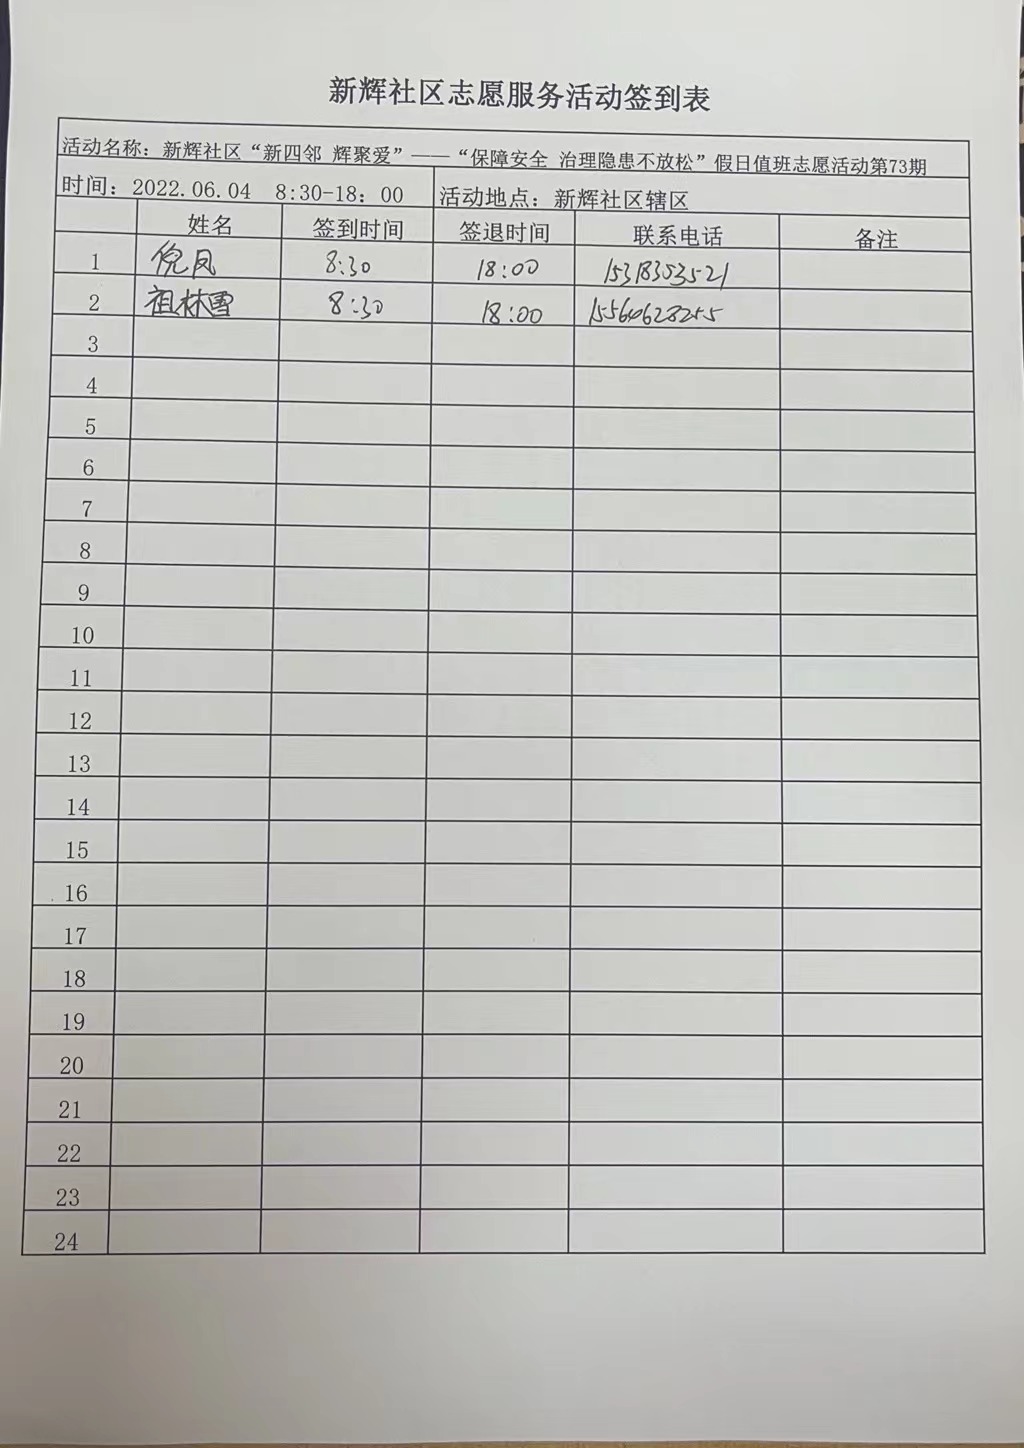 新辉社区志愿服务活动签到表
活动名称：新辉社区“新四邻 辉聚爱”——“保障安全 治理隐患不放松”假日值班志愿活动第73期
时间：2022.06.04 8:30-18：00 活动地点：新辉社区辖区
姓名 签到时间 签退时间 联系电话 备注
1 倪凤 8:30 18:00 15318353521
2 祖林雪 8:30 18:00
3
4
5
6
7
8
9
10
11
12
13
14
15
16
17
18
19
20
21
22
23
24